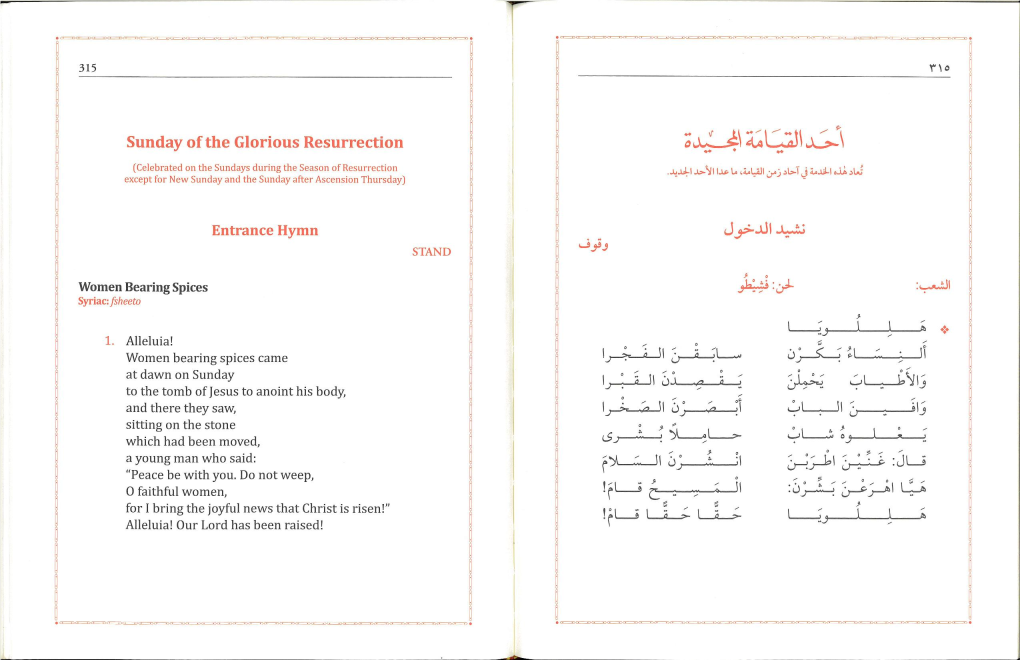 315
Sunday of the Glorious Resurrection
(Celebrated on the Sundays during the Season of Resurrection
except for New Sunday and the Sunday after Ascension Thursday)
Entrance Hymn
STAND
Women Bearing Spices
Syriac: fsheeto
1. Alleluia!
Women bearing spices came
at dawn on Sunday
to the tomb of Jesus to anoint his body,
and there they saw,
sitting on the stone
which had been moved,
a young man who said:
“Peace be with you. Do not weep,
O faithful women,
for I bring the joyful news that Christ is risen!”
Alleluia! Our Lord has been raised!
٣١٥
أحَد القيَامَة المجيدة
تُعاد هٰذه الخدمة في آحاد زمن القيامة، ما عدا الأحد الجديد.
نشيد الدخول
وقوف
الشعب: لحن: فْشِيْطُو
❖ هَلِلُويَا
أَلنِسَاءُ بَكَّرْنَ سَابَقْنَ الفَجْرا
وَالأَطْيَابَ يَحْمِلْنَ يَقْصِدْنَ القَبْرا
وَافَيْنَ البَابْ أَبْصَرْنَ الصَخْرا
يَعْلُوهُ شَابْ حَامِلاً بُشْرى
قَالَ: غَنَّيْنَ اطْرَبْنَ انْشُرْنَ السَلامْ
هَيَّا اهْرَعْنَ بَشِّرْنَ: الْمَسِيحُ قَامْ!
هَلِلُويَا حَقًّا حَقًّا قَامْ!